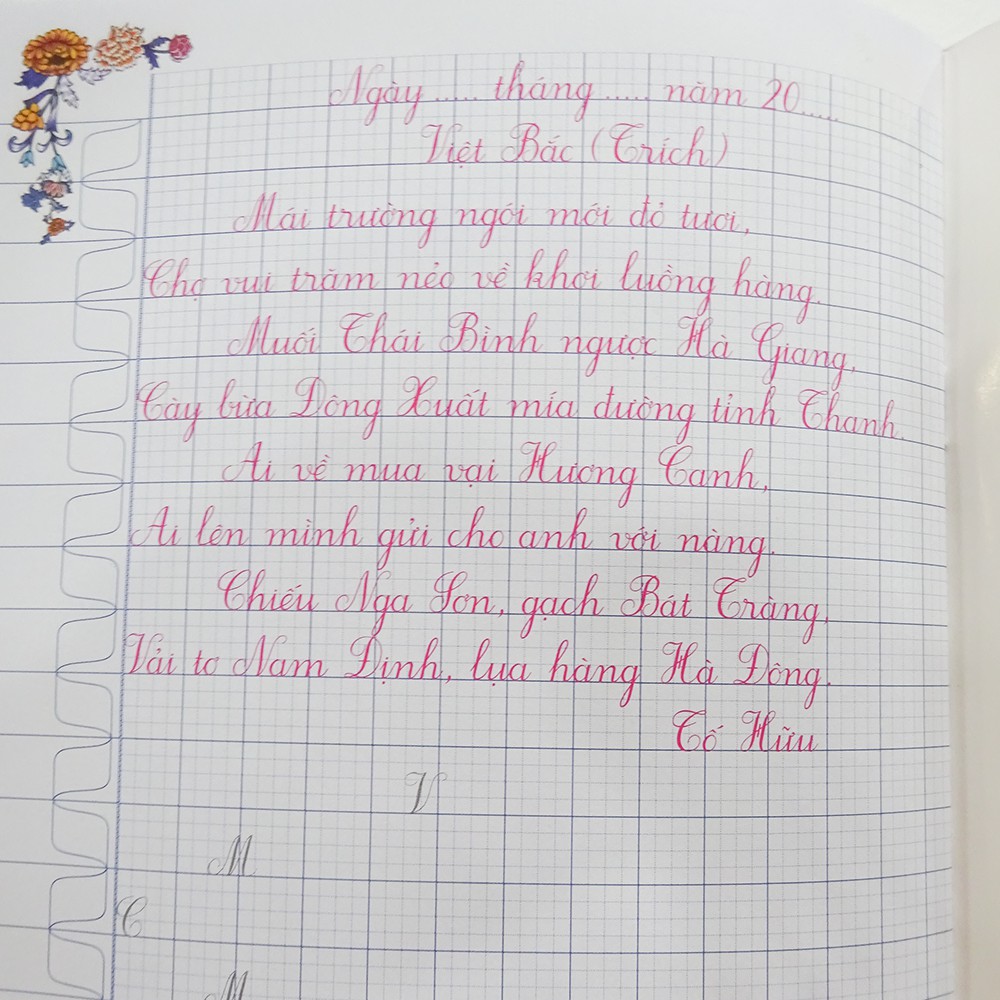 Ngày ..... tháng ..... năm 20.....
Việt Bắc (Trích)
Mái trường ngói mới đỏ tươi,
Chợ vui trăm nẻo về khơi luồng hàng.
Muối Thái Bình ngược Hà Giang,
Cày bừa Đông Xuất mía đường tỉnh Thanh.
Ai về mua vại Hương Canh,
Ai lên mình gửi cho anh với nàng.
Chiếu Nga Sơn, gạch Bát Tràng,
Vải tơ Nam Định, lụa hàng Hà Đông.
Tố Hữu
V
M
C
M